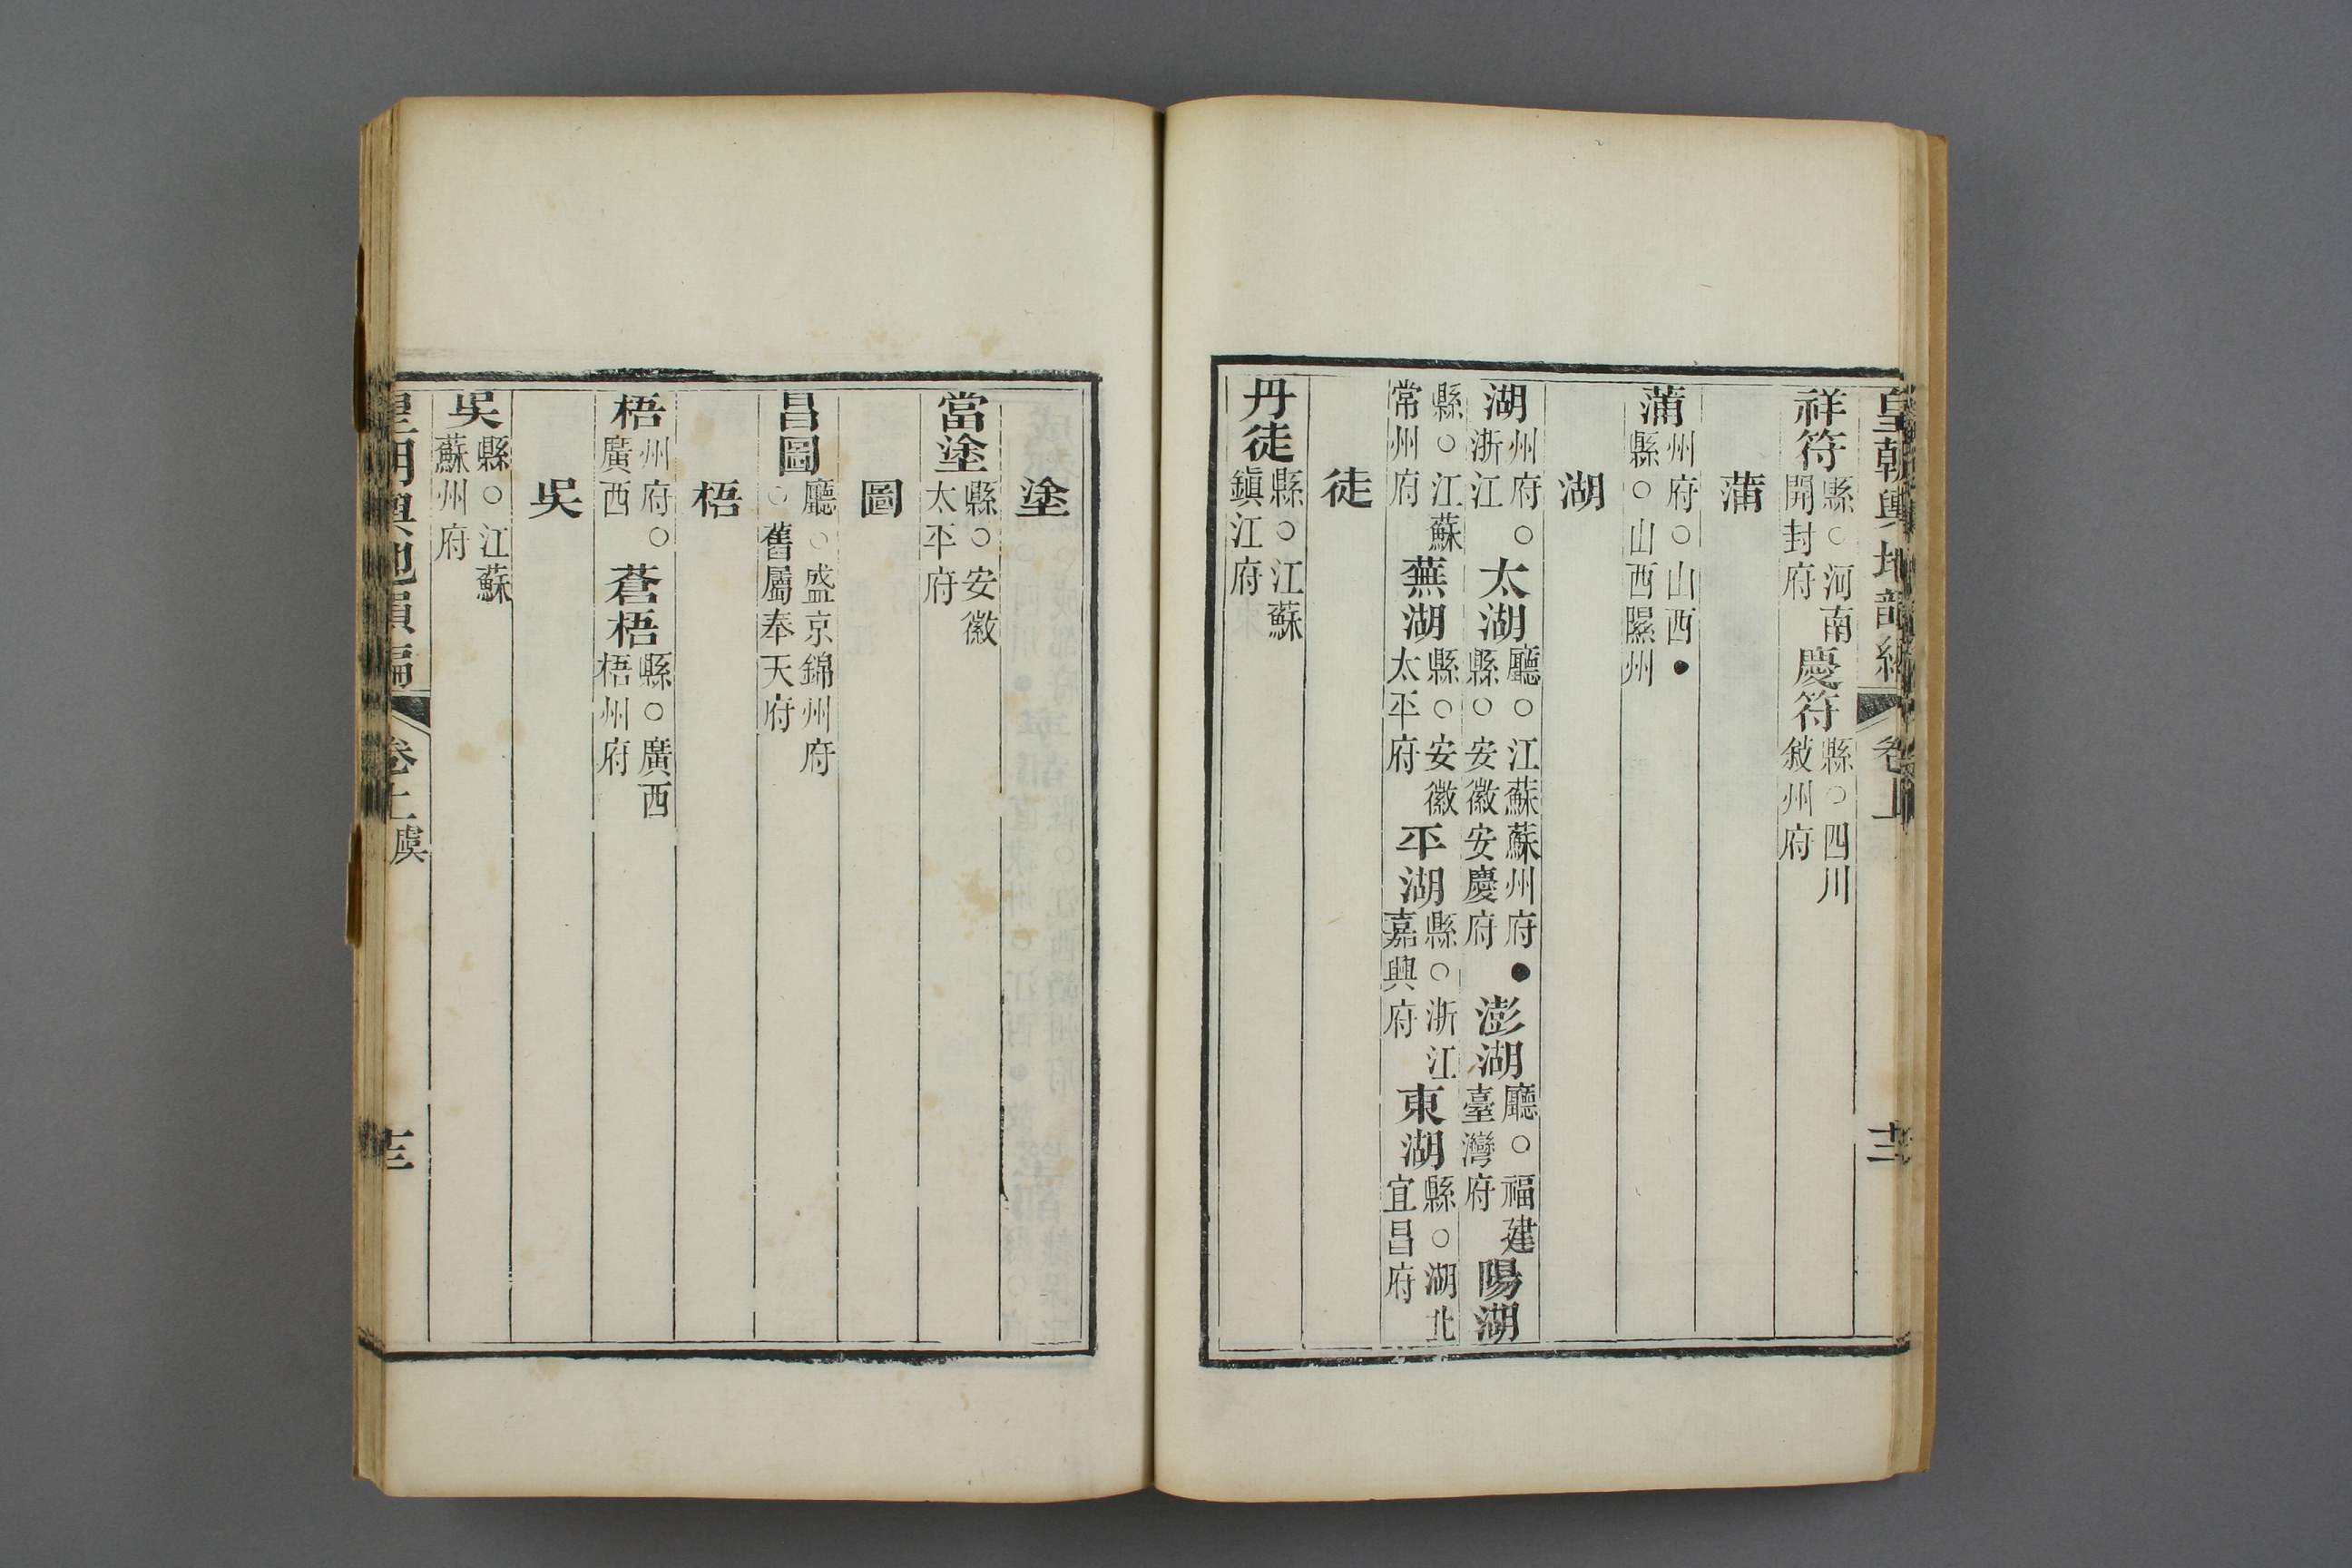 皇朝輿地韻編 卷上 十二
祥符縣○河南開封府 慶符縣○四川敍州府
蒲
蒲州府○山西●縣○山西隰州
湖
湖州府○浙江 太湖廳○江蘇蘇州府●縣○安徽安慶府 澎湖廳○福建臺灣府 陽湖
縣○江蘇常州府 蕪湖縣○安徽太平府 平湖縣○浙江嘉興府 東湖縣○湖北宜昌府
徒
丹徒縣○江蘇鎭江府
塗
當塗縣○安徽太平府
圖
昌圖廳○盛京錦州府○舊屬奉天府
梧
梧州府○廣西 蒼梧縣○廣西梧州府
吳
吳縣○江蘇蘇州府
皇朝輿地韻編 卷上 虞 十三